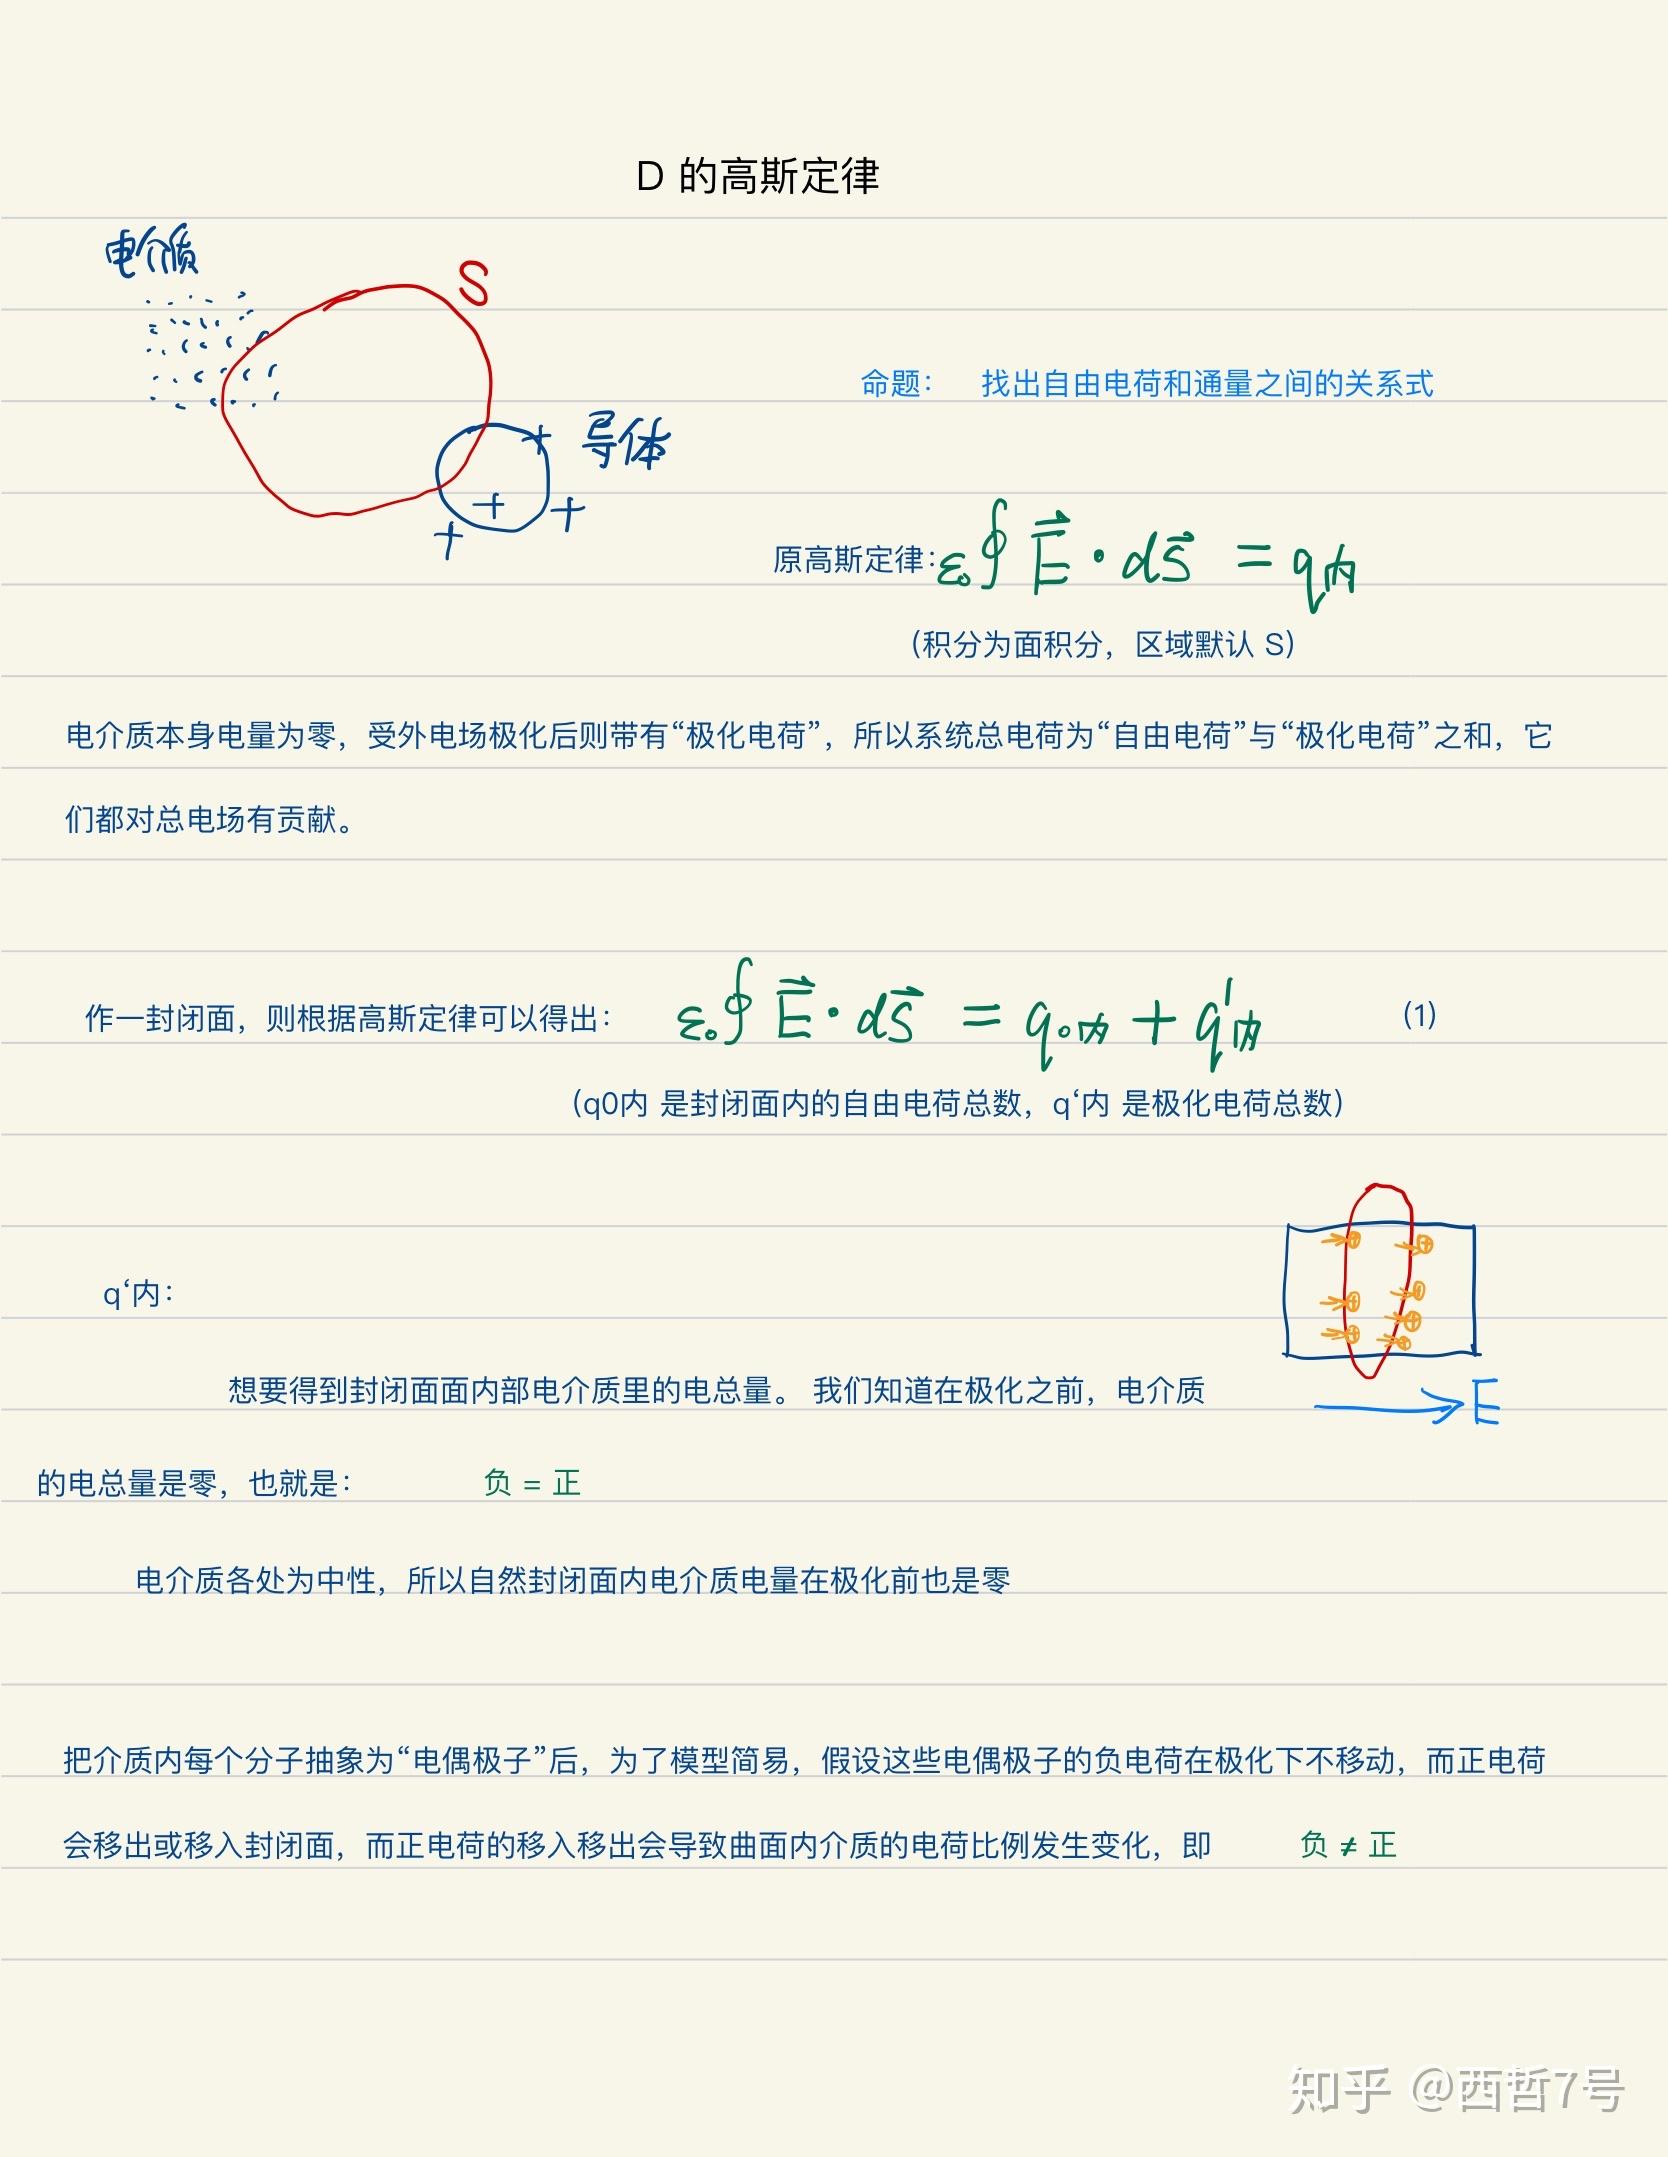 D 的高斯定律
电介质
S
命题： 找出自由电荷和通量之间的关系式
导体
原高斯定律：ε₀∮E⃗·dS⃗ = q内
（积分为面积分，区域默认 S）
电介质本身电量为零，受外电场极化后则带有“极化电荷”，所以系统总电荷为“自由电荷”与“极化电荷”之和，它
们都对总电场有贡献。
作一封闭面，则根据高斯定律可以得出： ε₀∮E⃗·dS⃗ = q₀内 + q'内 （1）
（q0内 是封闭面内的自由电荷总数，q‘内 是极化电荷总数）
q‘内：
想要得到封闭面面内部电介质里的电总量。 我们知道在极化之前，电介质
E
的电总量是零，也就是： 负 = 正
电介质各处为中性，所以自然封闭面内电介质电量在极化前也是零
把介质内每个分子抽象为“电偶极子”后，为了模型简易，假设这些电偶极子的负电荷在极化下不移动，而正电荷
会移出或移入封闭面，而正电荷的移入移出会导致曲面内介质的电荷比例发生变化，即 负 ≠ 正
知乎 @西哲7号